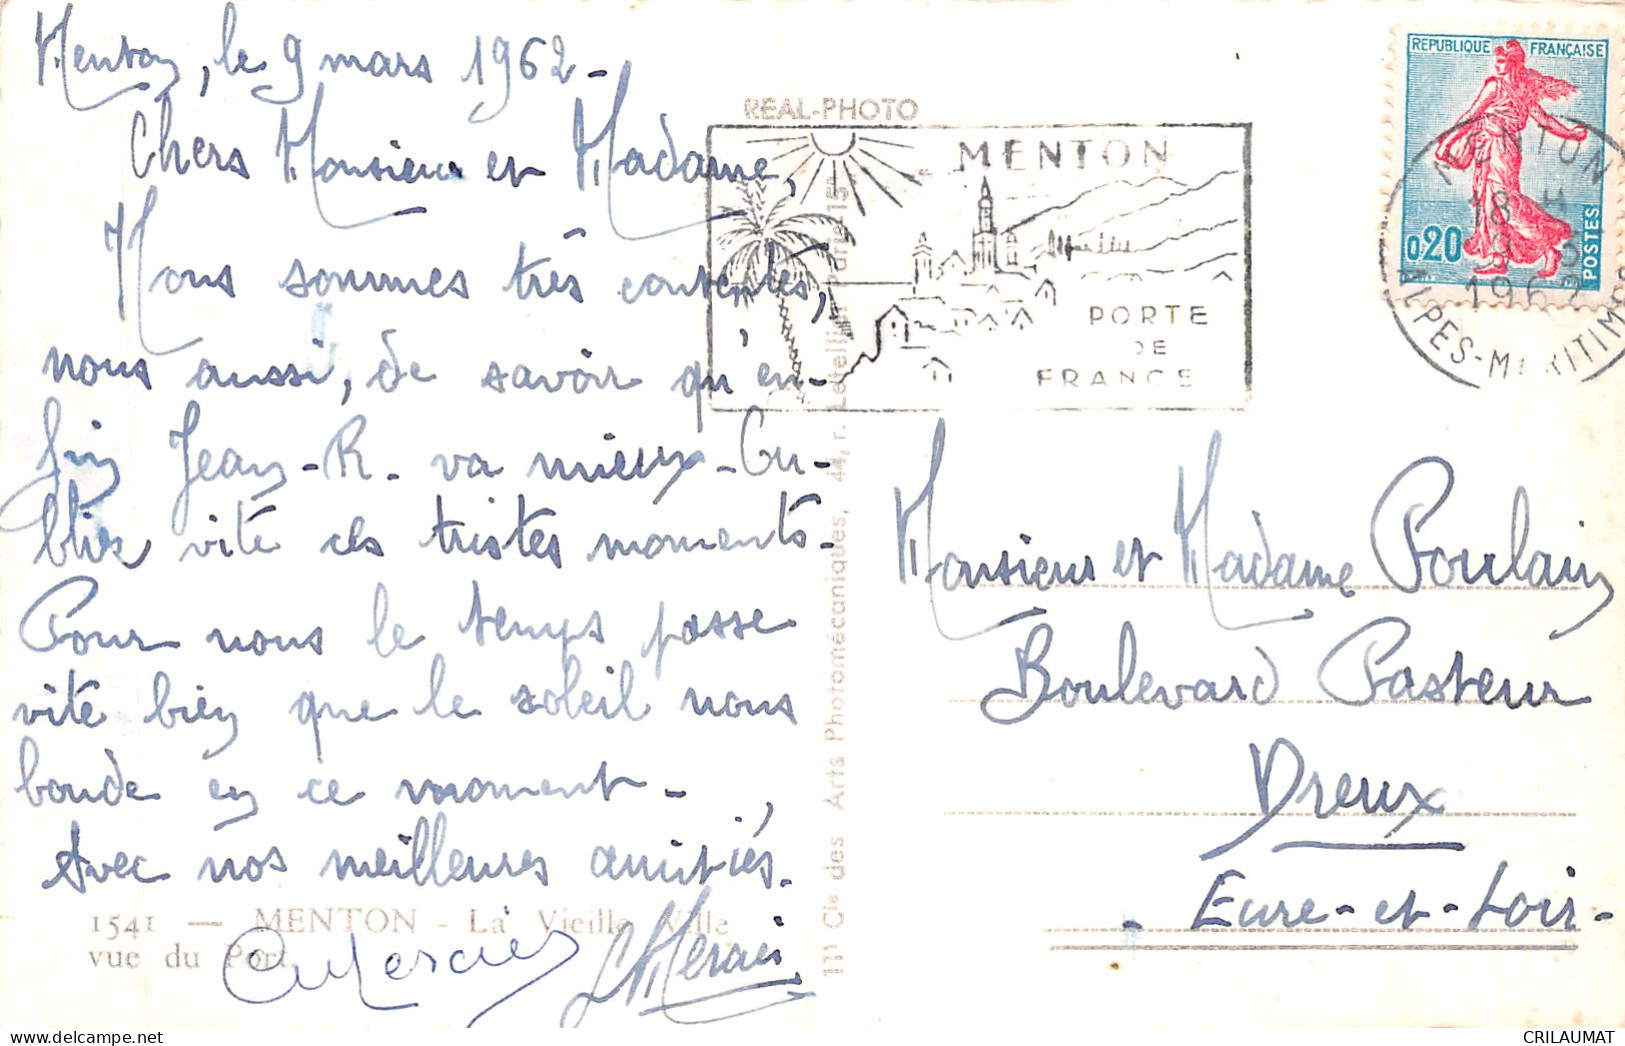 Menton, le 9 mars 1962 -
Chers Monsieur et Madame,
Nous sommes très contentes,
nous aussi, de savoir qu'en-
fin Jean-R. va mieux - Ou-
bliez vite ces tristes moments -
Pour nous le temps passe
vite bien que le soleil nous
boude en ce moment -
Avec nos meilleures amitiés.
1541 — MENTON - La Vieille Ville
vue du Port.
REAL-PHOTO
MENTON
PORTE
DE
FRANCE
Cie des Arts Photomécaniques, 44, r. Letellier Paris-15e
REPUBLIQUE FRANÇAISE
0,20
POSTES
MENTON
18 H
9 - 3
1962
ALPES-MARITIMES
Monsieur et Madame Poulain
Boulevard Pasteur
Dreux
Eure-et-Loir -
CRILAUMAT